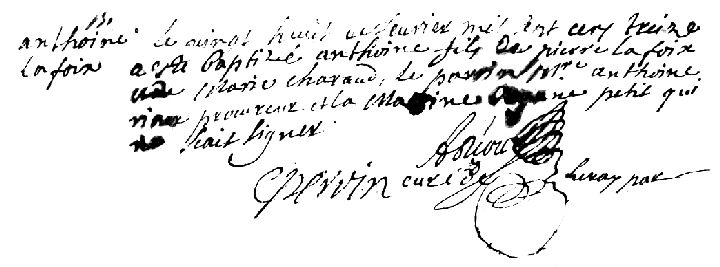 anthoine le vingt huit de fevrier mil sept cens treize
lafoix a esté baptizé anthoine fils de pierre lafoix
et de Marie charaud, le parrin Mre anthoine
procureur et la Marrine petit qui
ne scait signer
Perrin curé de